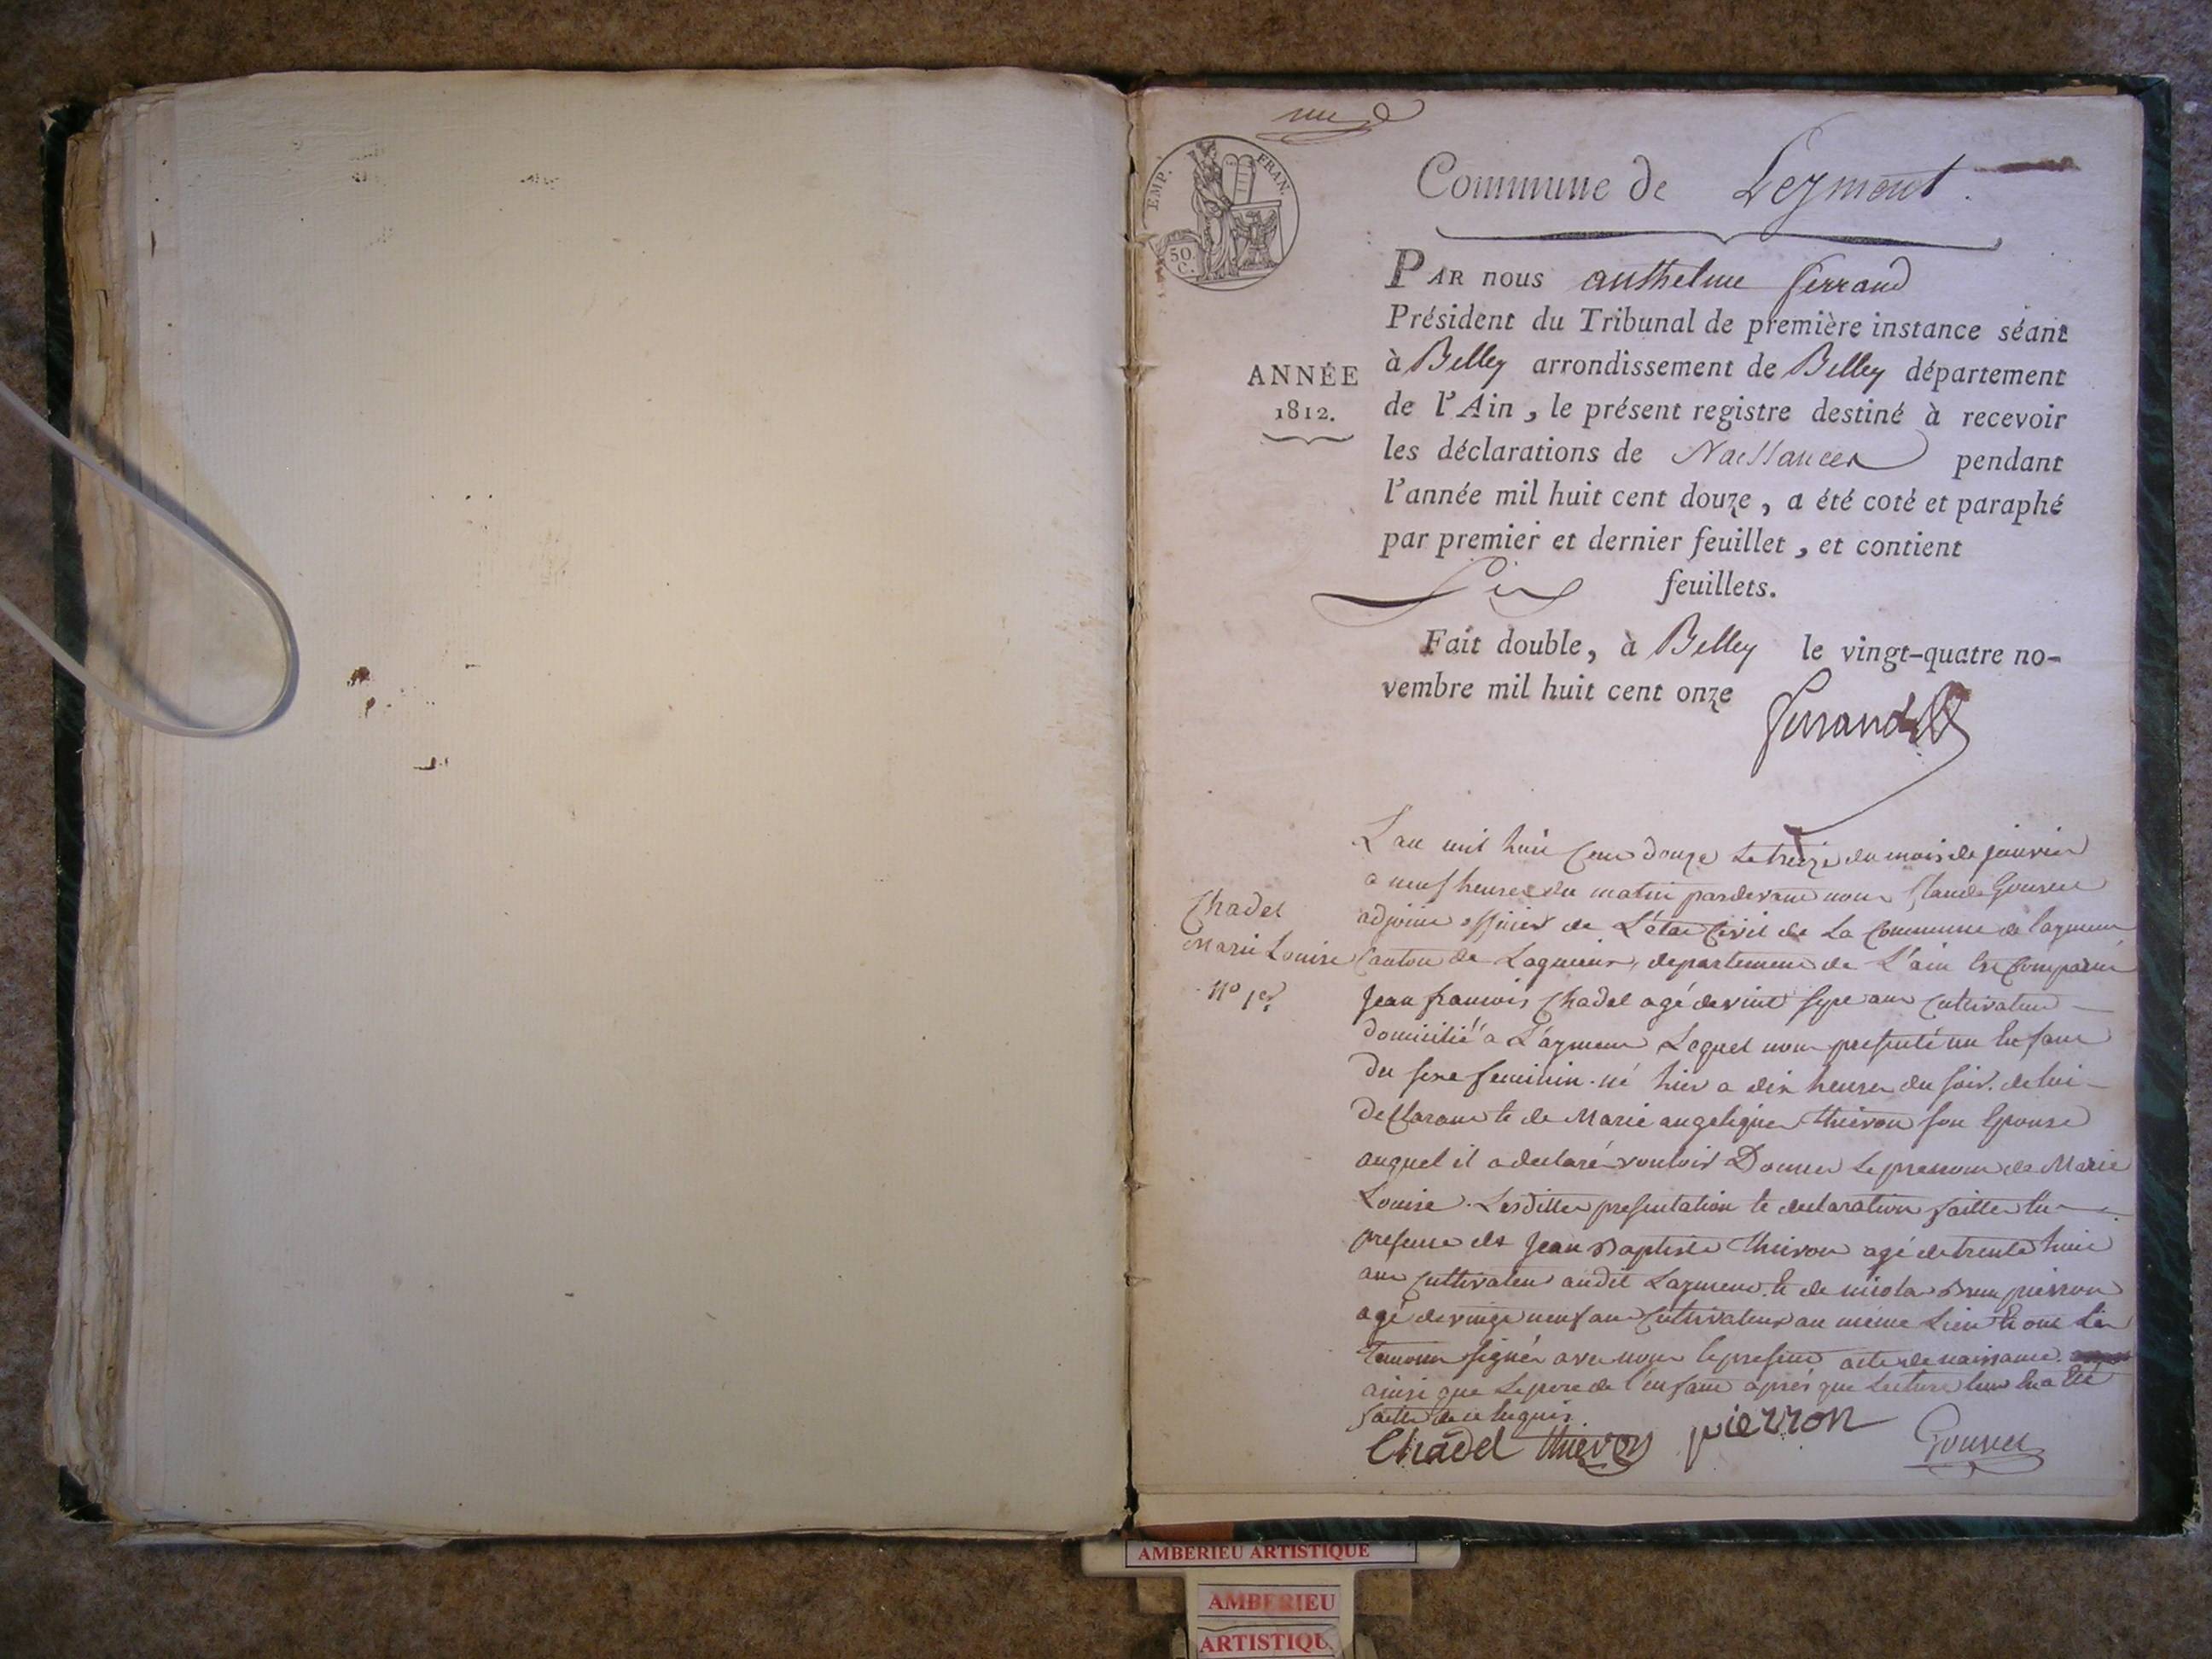 une
EMP. FRAN.
50 C.
Commune de Leyment.
PAR nous anthelme ferrand
Président du Tribunal de première instance séant
à Belley arrondissement de Belley département
de l'Ain, le présent registre destiné à recevoir
les déclarations de Naissances pendant
l'année mil huit cent douze, a été coté et paraphé
par premier et dernier feuillet, et contient
Six feuillets.
Fait double, à Belley le vingt-quatre no-
vembre mil huit cent onze
ferrand
ANNÉE
1812.
Chadel
Marie Louise
No 1er
L'an mil huit Cent douze le treize du mois de janvier
a neuf heures du matin pardevant nous Claude Gouvet
adjoint officier de L'état Civil de La Commune de laymen
Canton de Lagnieux, departement de L'ain Est Comparu
Jean francois Chadel agé de vint sept ans Cultivateur
domicilié a Laymen Lequel nous presenté un Enfant
du sexe feminin né hier a dix heures du soir. de lui
declarant Et de Marie angelique thievon son Epouse
auquel il a declaré vouloir Donner Le prenom de Marie
Louise. Lesdittes presentation Et declaration faittes En
presence de Jean Baptiste thievon agé de trente huit
ans Cultivateur audit Laymen Et de nicolas pierron
agé de vingt neuf ans Cultivateur au même Lieu Et ont Les
temoins signés avec nous Le present acte de naissance
ainsi que Le pere de l'enfant après que Lecture leur En a Eté
faitte de ce Enquis.
Chadel thievon pierron Gouvet
AMBERIEU ARTISTIQUE
AMBERIEU
ARTISTIQU